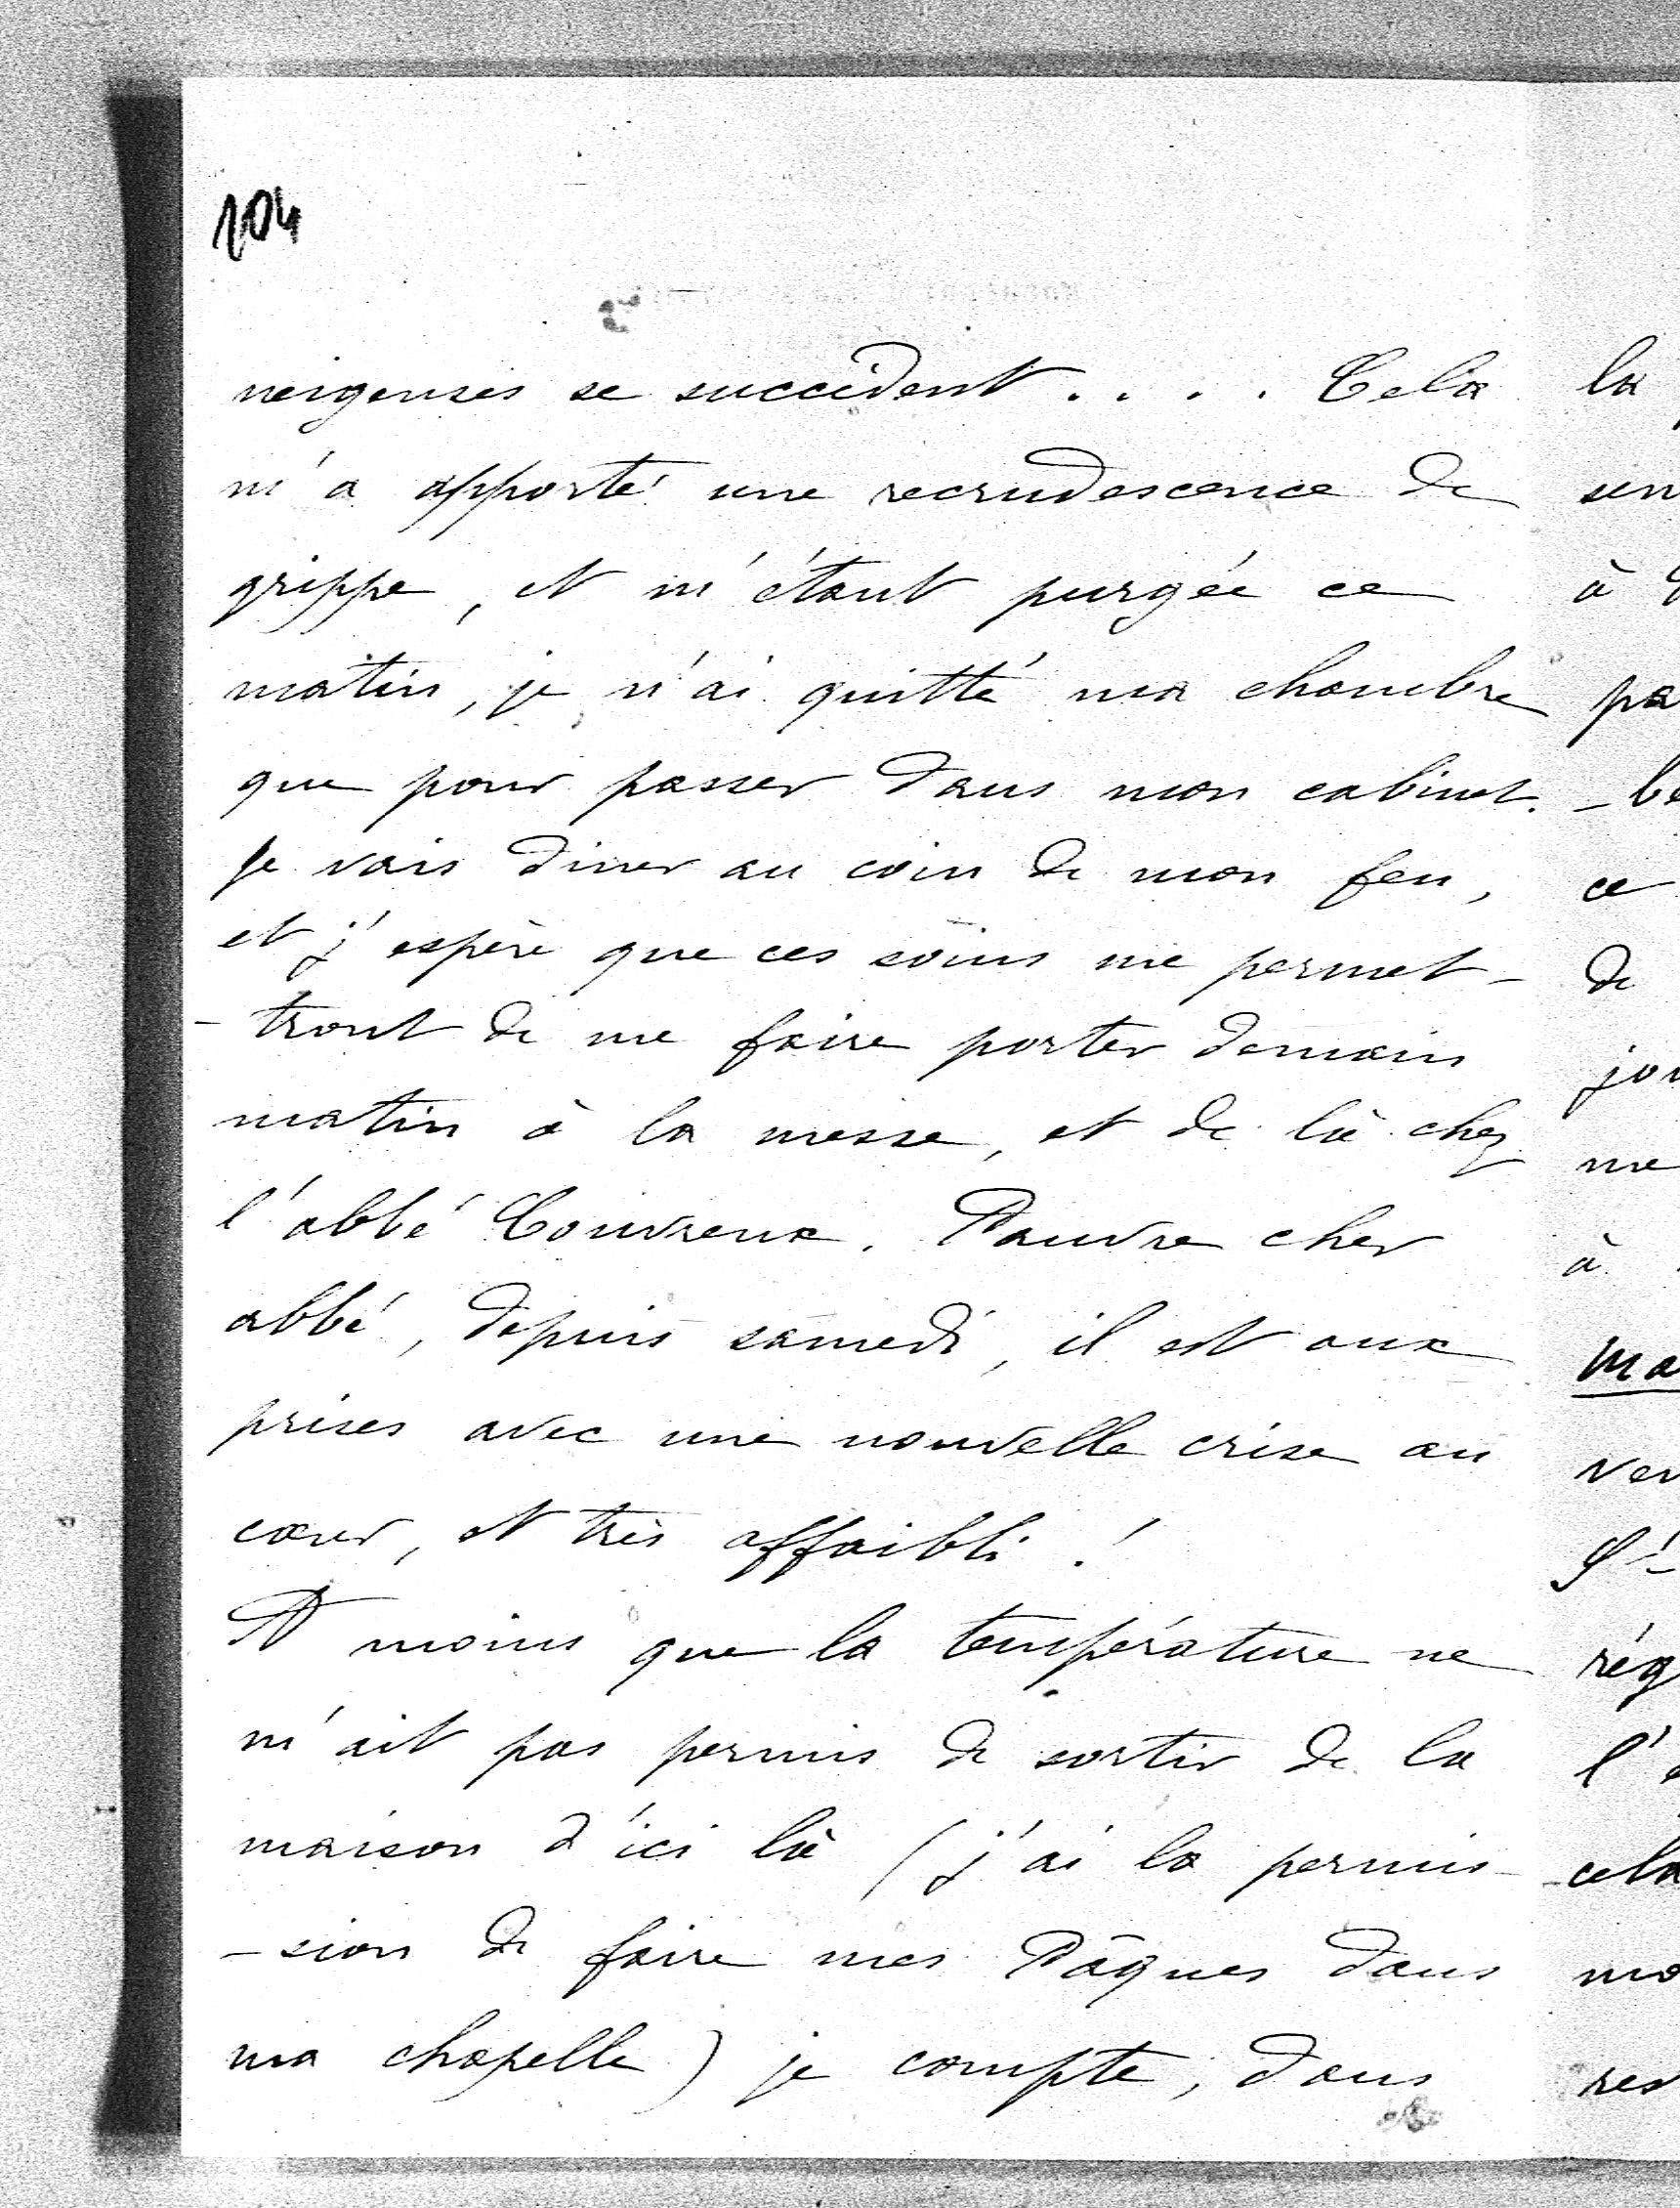 104
neigeuses se succèdent . . . . Cela
m'a apporté une recrudescence de
grippe, et m'étant purgée ce
matin, je n'ai quitté ma chambre
que pour passer dans mon cabinet.
Je vais diner au coin de mon feu,
et j'espère que ces soins me permet-
-tront de me faire porter demain
matin à la messe, et de là chez
l'abbé Couvreux. Pauvre cher
abbé, depuis samedi, il est aux
prises avec une nouvelle crise au
cœur, et très affaibli !
A moins que la température ne
m'ait pas permis de sortir de la
maison d'ici là (j'ai la permis-
-sion de faire mes Pâques dans
ma chapelle) je compte, dans
la
sen
à
pa
-be
ce
de
jou
me
à
ma
ver
St
rég
l'
cela
mo
res